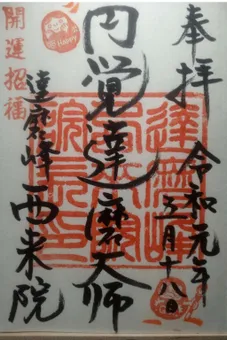 奉拝
令和元年
五月十八日
円覚達磨大師
開運招福
Happy
達磨峰
西来院